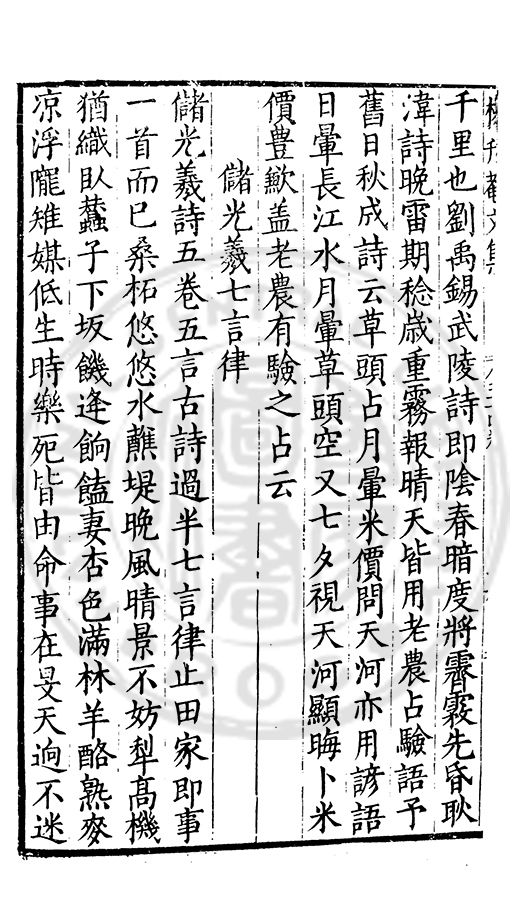 千里也劉禹錫武陵詩即陰春暗度將霽霧先昏耿
湋詩晚雷期稔歲重霧報晴天皆用老農占驗語予
舊日秋成詩云草頭占月暈米價問天河亦用諺語
日暈長江水月暈草頭空又七夕視天河顯晦卜米
價豊歉盖老農有驗之占云
儲光羲七言律
儲光羲詩五卷五言古詩過半七言律止田家即事
一首而已桑柘悠悠水蘸堤晚風晴景不妨犁髙機
猶織臥蠶子下坂饑逢餉饁妻杏色滿林羊酪熟麥
凉浮隴雉媒低生時樂死皆由命事在旻天逈不迷